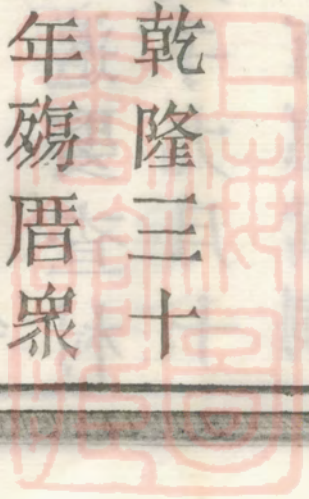 乾隆三十
年殤厝衆